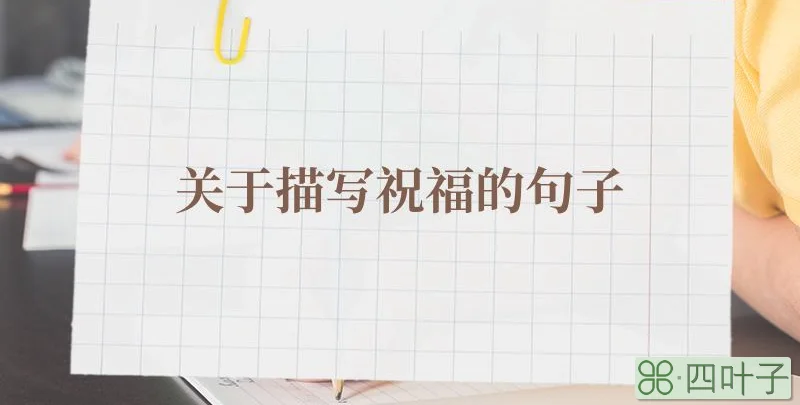 关于描写祝福的句子
四叶子